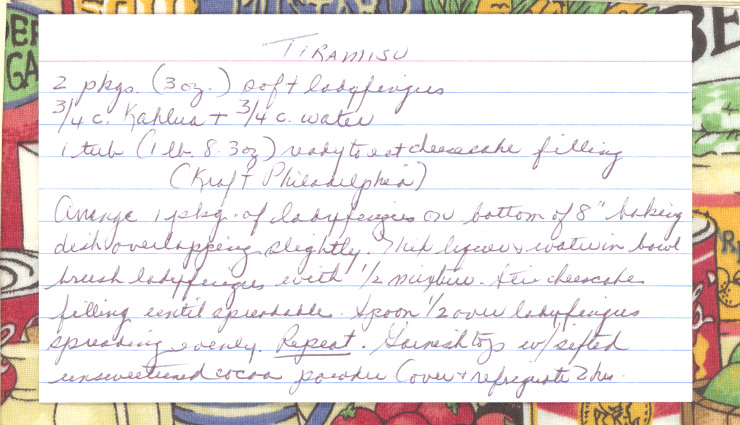 TIRAMISU
2 pkgs. (3 oz.) soft ladyfingers
3/4 c. Kahlua + 3/4 c. water
1 tub (1 lb. 8.3 oz) ready to eat cheesecake filling
(Kraft Philadelphia)
Arrange 1 pkg. of ladyfingers on bottom of 8" baking
dish overlapping slightly. Mix liquor & water in bowl
brush ladyfingers with 1/2 mixture. Stir cheesecake
filling until spreadable. Spoon 1/2 over ladyfingers
spreading evenly. Repeat. Garnish top w/ sifted
unsweetened cocoa powder Cover + refrigerate 2 hrs.